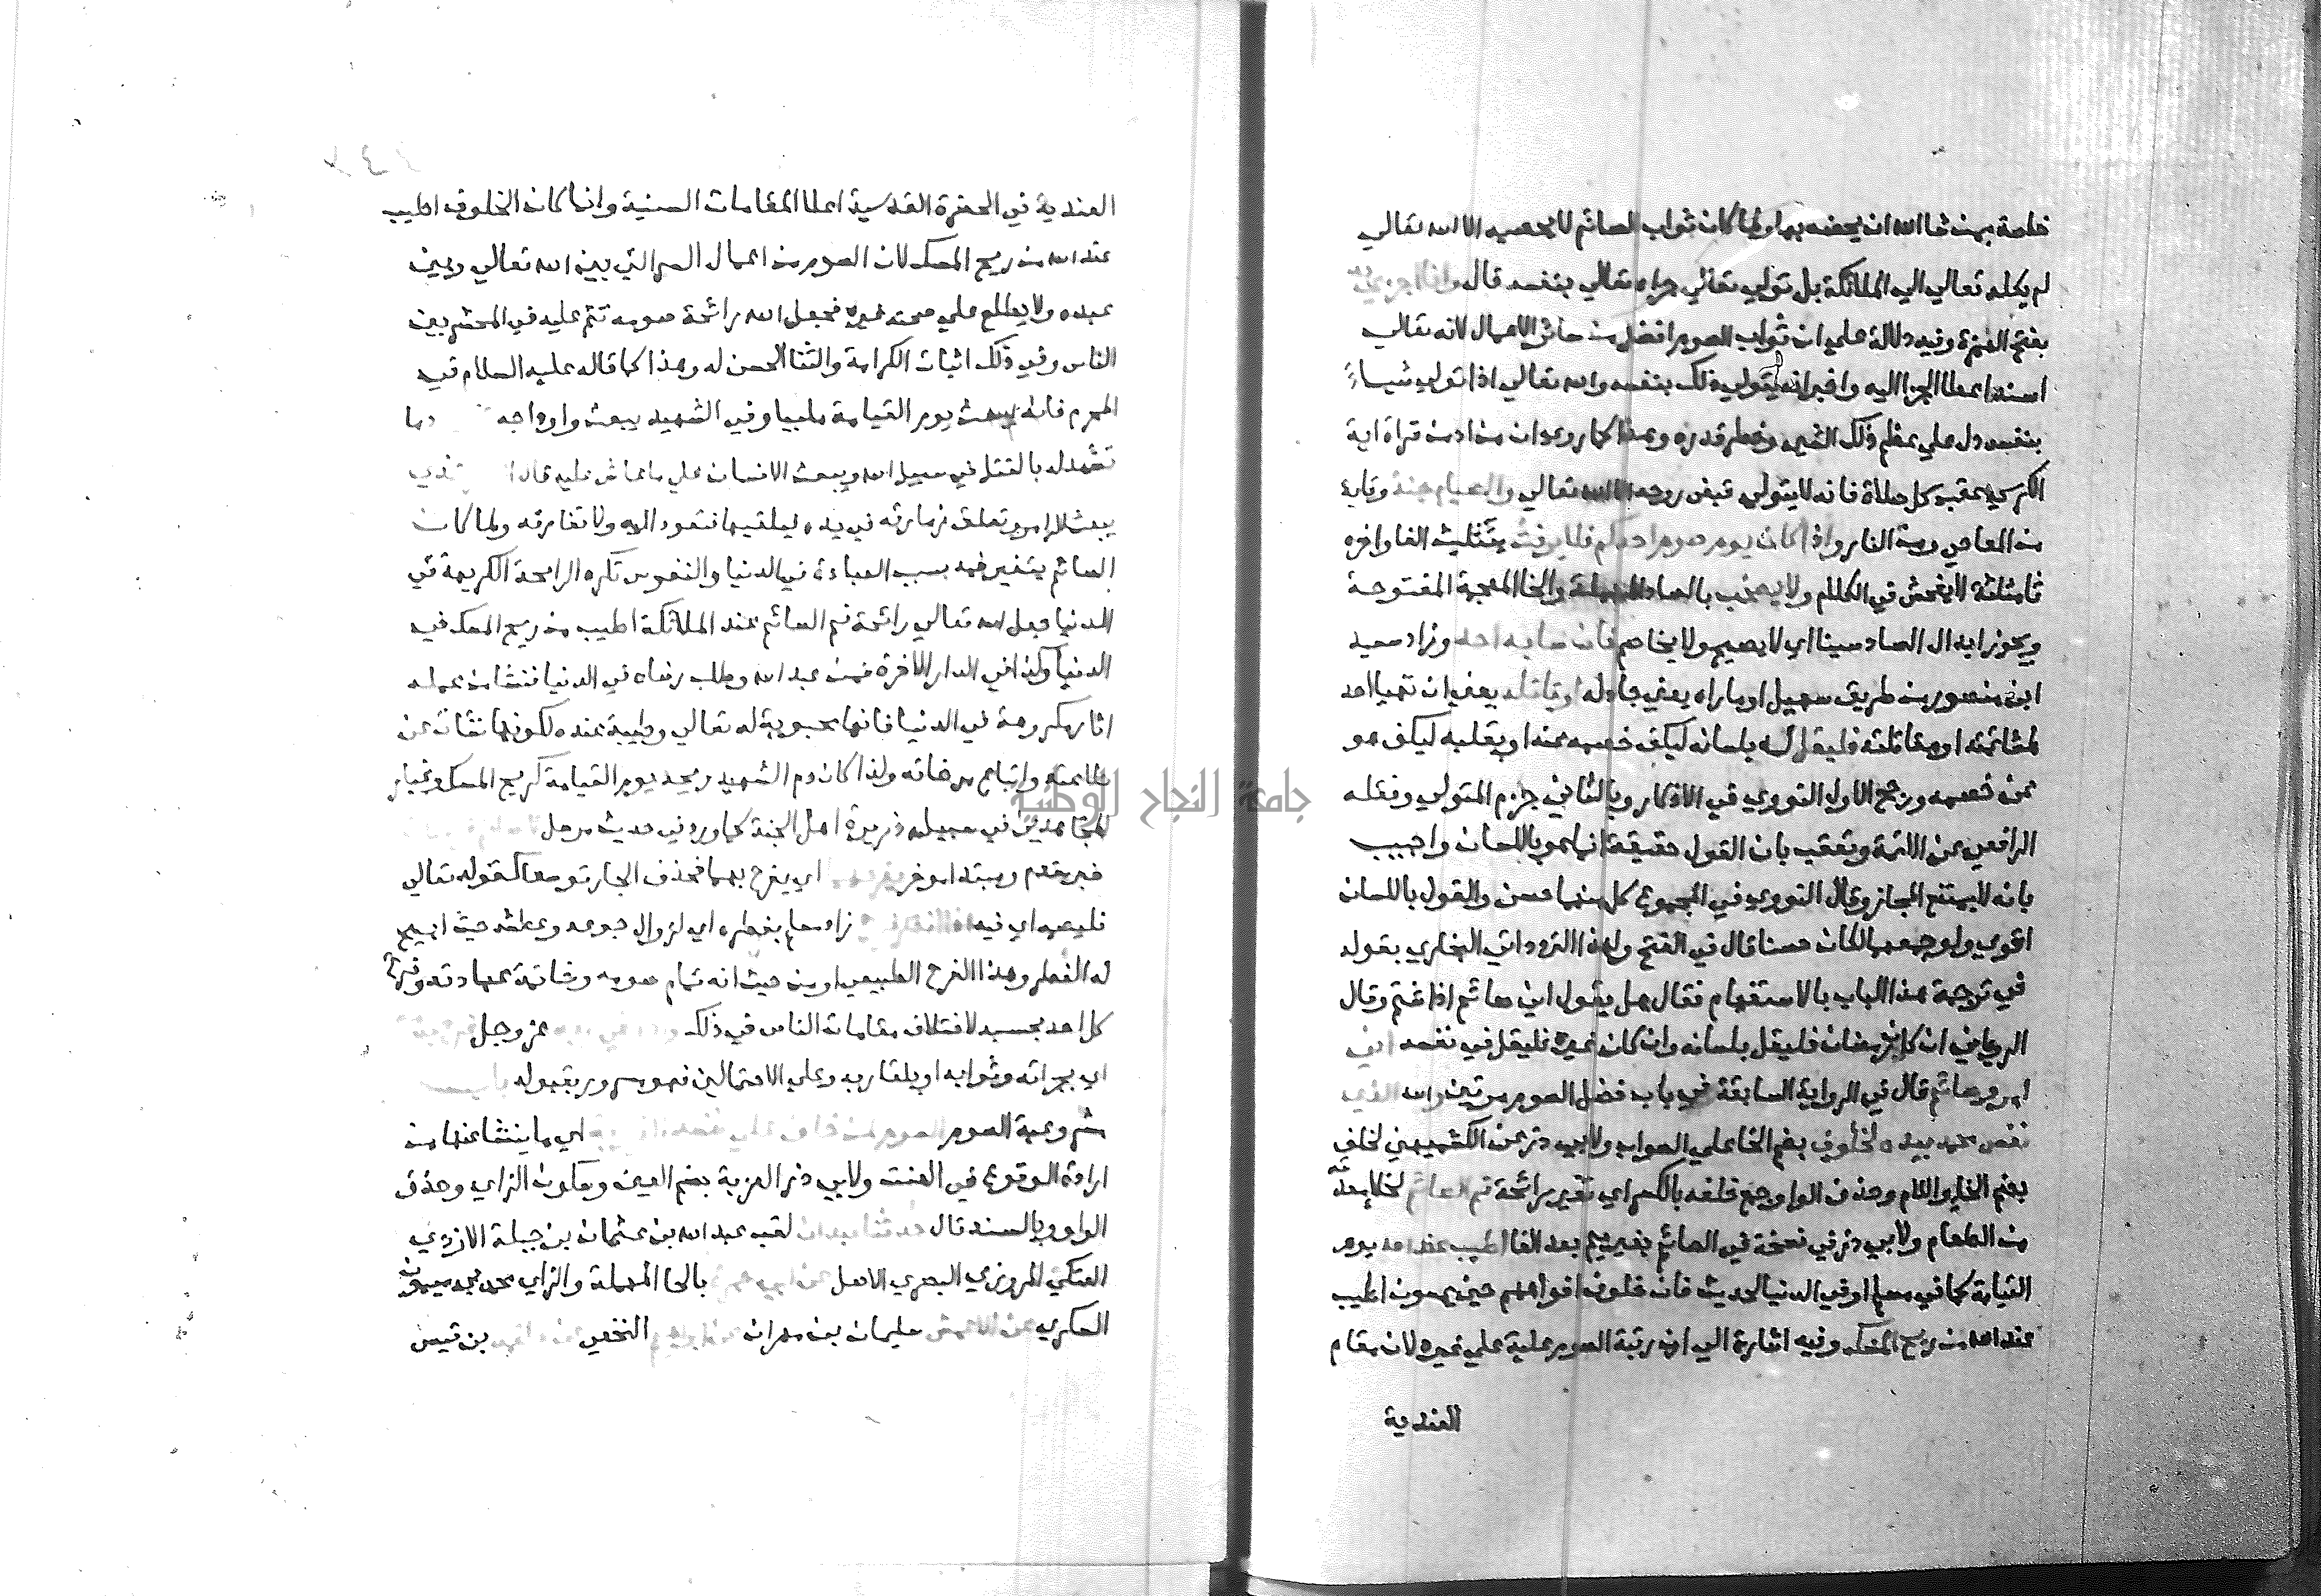 خاصة بمن شا الله ان يخصه بها ولما كان ثواب الصائم لا يحصيه الا الله تعالي
لم يكله تعالي الي الملائكة بل تولي تعالي جزاه تعالي بنفسه قال وانا اجزي به
بفتح الهمزة وفيه دلالة علي ان ثواب الصوم افضل من سائر الاعمال لانه تعالي
اسند اعطا الجزا اليه واخبر انه يتولي ذلك بنفسه والله تعالي اذا تولي شياء
بنفسه دل علي عظم ذلك الشي وخطر قدره وهذا كما روي ان من ادمن قراة اية
الكرسي عقب كل صلاة فانه لا يتولي قبض روحه الا الله تعالي والصيام جنة وقاية
من المعاصي ومن النار واذا كان يوم صوم احدكم فلا يرفث بتثليث الفا واخره
ثا مثلثة لا يفحش في الكلام ولا يصخب بالصاد المهملة والخا المعجمة المفتوحة
ويجوز ابدال الصاد سينا اي لا يصيح ولا يخاصم فان سابه احد وزاد سعيد
ابن منصور من طريق سهيل او ماراه يعني جادله او قاتله يعني ان تهيا احد
لمشاتمته او مقاتلته فليقل له بلسانه ليكف خصمه عنه او بقلبه ليكف هو
عن خصمه ورجح الاول النووي في الاذكار وبالثاني جزم المتولي ونقله
الرافعي عن الائمة وتعقب بان القول حقيقة انما هو باللسان واجيب
بانه لا يمتنع المجاز وقال النووي في المجموع كل منهما حسن والقول باللسان
اقوي ولو جمعهما لكان حسنا قال في الفتح ولهذا التردد اتي البخاري بقوله
في ترجمة هذا الباب بالاستفهام فقال هل يقول اني صائم اذا شتم وقال
الروياني ان كان رمضان فليقل بلسانه وان كان غيره فليقل في نفسه اني
امرو صائم قال في الرواية السابقة في باب فضل الصوم مرتين والله الذي
نفس محمد بيده لخلوف بضم الخا علي الصواب ولابي ذر عن الكشميهني لخلف
بضم الخا واللام وحذف الواو جمع خلفه بالكسر اي تغير رائحة فم الصائم لخلا معدته
من الطعام ولابي ذر في نسخة في الصائم بغير ميم بعد الفا اطيب عند الله يوم
القيامة كما في مسلم او في الدنيا لحديث فان خلوف افواههم حين يمسون اطيب
عند الله من ريح المسك وفيه اشارة الي ان رتبة الصوم علية علي غيره لان مقام
العندية
العندية في الحضرة القدسية اعلا المقامات السنية وانما كان الخلوف اطيب
عند الله من ريح المسك لان الصوم من اعمال السر التي بين الله تعالي وبين
عبده ولا يطلع علي صحته غيره فجعل الله رائحة صومه تنم عليه في المحشر بين
الناس وفي ذلك اثبات الكرامة والثنا الحسن له وهذا كما قاله عليه السلام في
المحرم فانه يبعث يوم القيامة ملبيا وفي الشهيد يبعث واوداجه دما
تشهد له بالقتل في سبيل الله ويبعث الانسان علي ما عاش عليه قال
يبعث الزامر وتعلق زمارته في يده فيلقيها فتعود اليه ولا تفارقه ولما كان
الصائم يتغير فمه بسبب العبادة في الدنيا والنفوس تكره الرائحة الكريهة في
الدنيا جعل الله تعالي رائحة فم الصائم عند الملائكة اطيب من ريح المسك في
الدنيا وكذا في الدار الاخرة فمن عبد الله وطلب رضاه في الدنيا فنشا من عمله
اثار مكروهة في الدنيا فانها محبوبة له تعالي وطيبة عنده لكونها نشات عن
طاعته واتباع مرضاته ولذا كان دم الشهيد ريحه يوم القيامة كريح المسك وغبار
المجاهدين في سبيله ذريرة اهل الجنة كما ورد في حديث مرسل
خبر مقدم ومبتدا موخر يفرحهما اي يفرح بهما فحذف الجار توسعا كقوله تعالي
فليصمه اي فيه اذا افطر فرح زاد مسلم بفطره اي لزوال جوعه وعطشه حيث ابيح
له الفطر وهذا الفرح الطبيعي او من حيث انه تمام صومه وخاتمة عبادته وفرح
كل احد بحسبه لاختلاف مقامات الناس في ذلك عز وجل
اي بجزائه وثوابه او بلقا ربه وعلي الاحتمالين فهو مسرور بقبوله باب
مشروعية الصوم الصوم لمن خاف علي نفسه العزوبة اي ما ينشا عنها من
ارادة الوقوع في العنت ولابي ذر العزبة بضم العين وسكون الزاي وحذف
الواو وبالسند قال حدثنا عبدان لقب عبد الله بن عثمان بن جبلة الازدي
العتكي المروزي البصري الاصل عن ابي حمزة بالحا المهملة والزاي محمد بن ميمون
السكري عن الاعمش سليمان بن مهران عن ابراهيم النخعي عن علقمة بن قيس
جامعة النجاح الوطنية